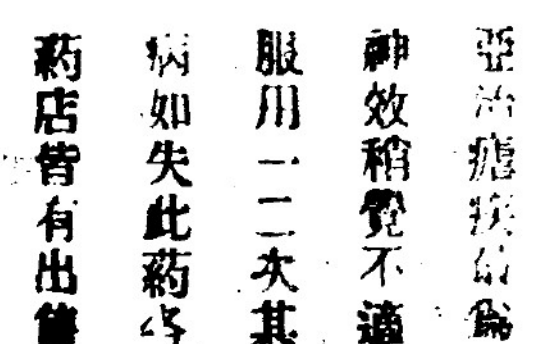 亞治瘧疾的為
神效稍覺不適
服用一二次其
病如失此藥各
药店皆有出售